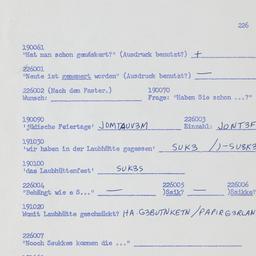 226
190061
"Hat man schon gemäsert?" (Ausdruck benutzt?) +
226001
"Heute ist gemesert worden" (Ausdruck benutzt?) —
226002 (Nach dem Fasten.) 190070
Wunsch: Frage: "Haben Sie schon ...?"
190090 226003
'jüdische Feiertage' JOMTAUV3M Einzahl: JONT3F
191030
'wir haben in der Laubhütte gegessen' SUK3 /)-SU3K3
190100
'das Laubhüttenfest' SUK3S
226004 226005 226006
"Behängt wie e S..." — )Sũik? — )Sũikke?
191020
Womit Laubhütte geschmückt? HA G3BUTNKETN/PAPIRG3RLAN
226007
"Nooch Seukkes kommen die ..."